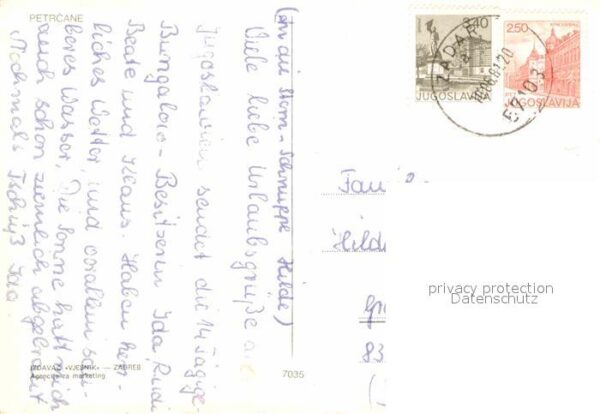 PETRČANE
(An die Stern-Schnuppe Hilde)
Viele liebe Urlaubsgrüße aus
Jugoslawien sendet die 14 tägige
Bungalow-Besitzerin Ida, Rudi
Beate und Klaus. Haben herr-
liches Wetter, und vorallem sau-
beres Wasser. Die Sonne hat mich
auch schon ziemlich abgebrannt
Nochmals Tschüß Ida
IZDAVAČ «VJESNIK» — ZAGREB
Agencija za marketing
7035
3.40
JUGOSLAVIJA
2.50
JUGOSLAVIJA
ZADAR
23103
Hilde
83
privacy protection
Datenschutz